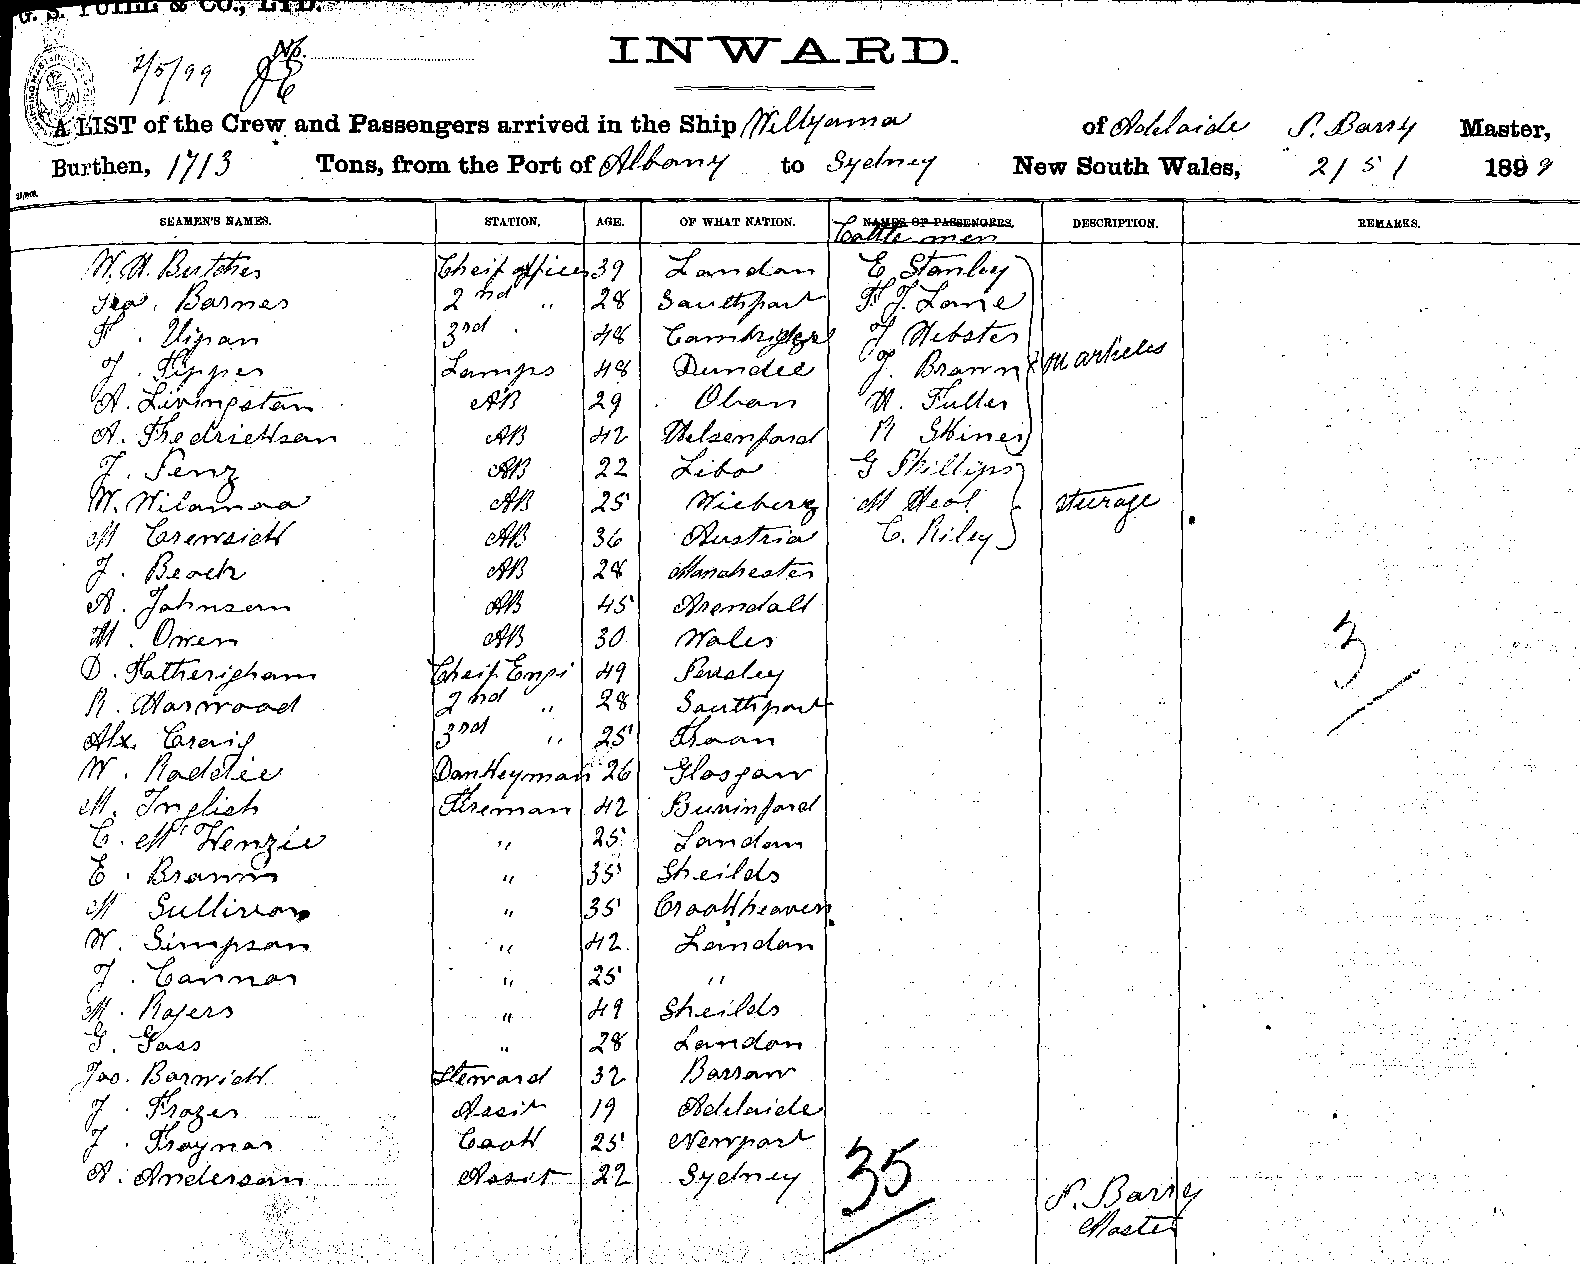 G. S. YUILL & CO., LTD.
No.
2/5/99
INWARD.
A LIST of the Crew and Passengers arrived in the Ship Willyama of Adelaide P. Barry Master,
Burthen, 1713 Tons, from the Port of Albany to Sydney New South Wales, 2/5/ 1899
SEAMEN'S NAMES. STATION. AGE. OF WHAT NATION. NAMES OF PASSENGERS. DESCRIPTION. REMARKS.
Cattle men
W. H. Butcher Cheif officer 39 London E. Stanley
Barnes 2nd " 28 Southport F. J. Lane
F. Vipan 3rd " 48 Cambridge J Webster
J. Pepper Lamps 48 Dundee J. Brown on articles
A. Livingston AB 29 Oban H. Fuller
A. Fredrickson AB 42 Helsenford R Skiner
J. Penz AB 22 Libo G Phillips
W. AB 25 M sturage
M AB 36 Austria C. Riley
J. Beach AB 28 Manchester
A. Johnson AB 45 Arendall
H. Owen AB 30 Wales
D. Fatherigham Cheif Engi 49 Peasley
R. Harwood 2nd " 28 Southport
Alx. Craig 3rd " 25 Troon
W. Raddie Donkeyman 26 Glasgow
M. Inglish Fireman 42
C. McKenzie " 25 London
E. Brown " 35 Sheilds
M Sullivan " 35 Crookheaven
W. Simpson " 42 London
J. Connor " 25 "
M. Rogers " 49 Sheilds
G. Goss " 28 London
Jas. Barwick Steward 32 Barrow
J. Frazer Assit 19 Adelaide
J. Traynor Cook 25 Newport
A. Anderson Assit 22 Sydney
3
35
P. Barry
Master